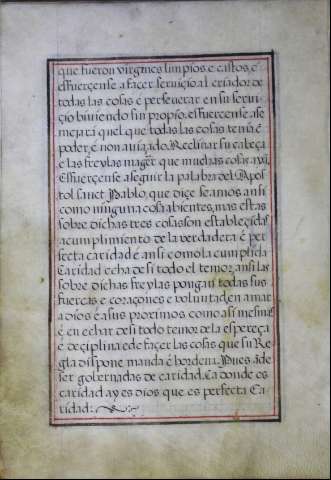 que fueron virgines limpios e castos, e
esfuerçense a façer seruiçio al criador de
todas las cosas e perseuerar en su serui-
çio biuiendo sin propio. esfuerçense ase
mejar a quel que todas las cosas tenia é
poder, é non auia do Reclinar su cabeça
e las freylas mager que muchas cosas ayã
Esfuerçense a seguir la palabra del Apos
tol sanct Pablo, que diçe seamos ansi
como ninguna cosa abientes, mas estas
sobre dichas tres cosas son establecidas
a cumplimiento de la verdadera é per
fecta caridad é ansi como la cumplida
Caridad echa de si todo el temor, ansi las
sobre dichas freylas pongan todas sus
fuercas e coraçones e voluntad en amar
a dios é a sus proximos como asi mesmas
é en echar de si todo temor de la espereça
é deçiplina e de façer las cosas que su Re
gla dispone manda é hordena. Pues ãde
ser gobernadas de caridad. Ca donde es
caridad ay es dios que es perfecta Ca
ridad: